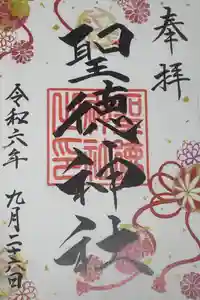 奉拝
聖徳神社
令和六年 九月二十八日